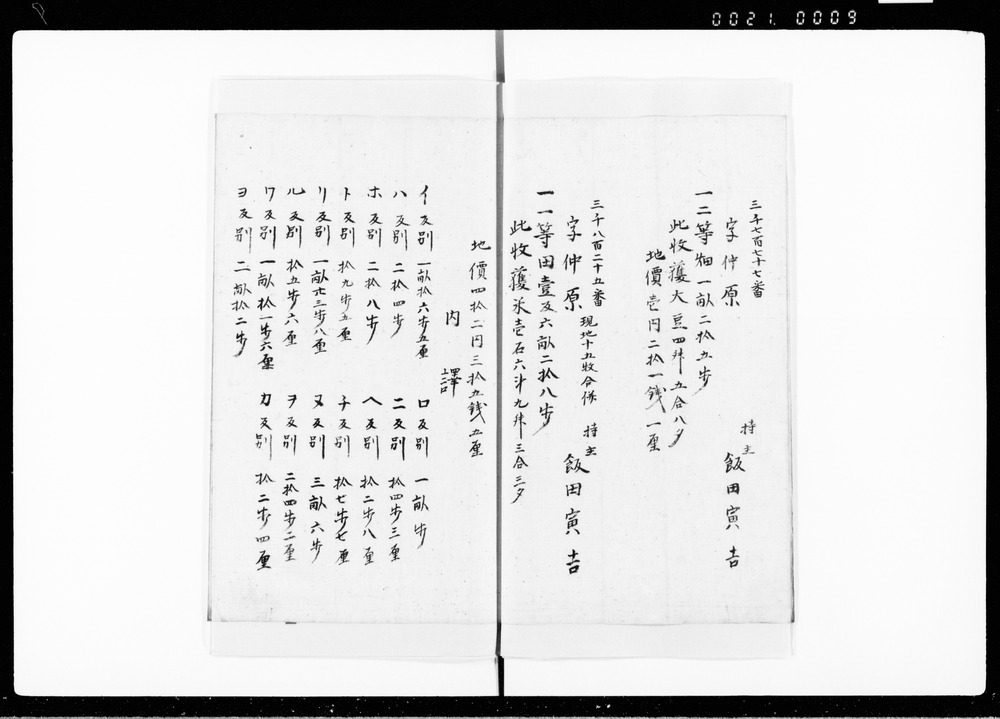 0021. 0009
三千七百七十七番
字仲原 持主 飯田寅吉
一二等畑一畝二拾五歩
此收獲大豆四升五合八夕
地價壱円二拾一錢一厘
三千八百二十五番
字仲原 現地十五牧合併 持主 飯田寅吉
一一等田壹反六畝二拾八歩
此收獲米壱石六斗九升三合三夕
地價四拾二円三拾五錢五厘
内譯
イ反別 一畝拾六歩五厘 ロ反別 一畝歩
ハ反別 二拾四歩 二反別 拾四歩三厘
ホ反別 二拾八歩 ヘ反別 拾二歩八厘
ト反別 拾九歩五厘 チ反別 拾七歩七厘
リ反別 一畝廿三歩八厘 ヌ反別 三畝六歩
ル反別 拾五歩六厘 ヲ反別 二拾四歩二厘
ワ反別 一畝拾一歩六厘 カ反別 拾二歩四厘
ヨ反別 二畝拾二歩